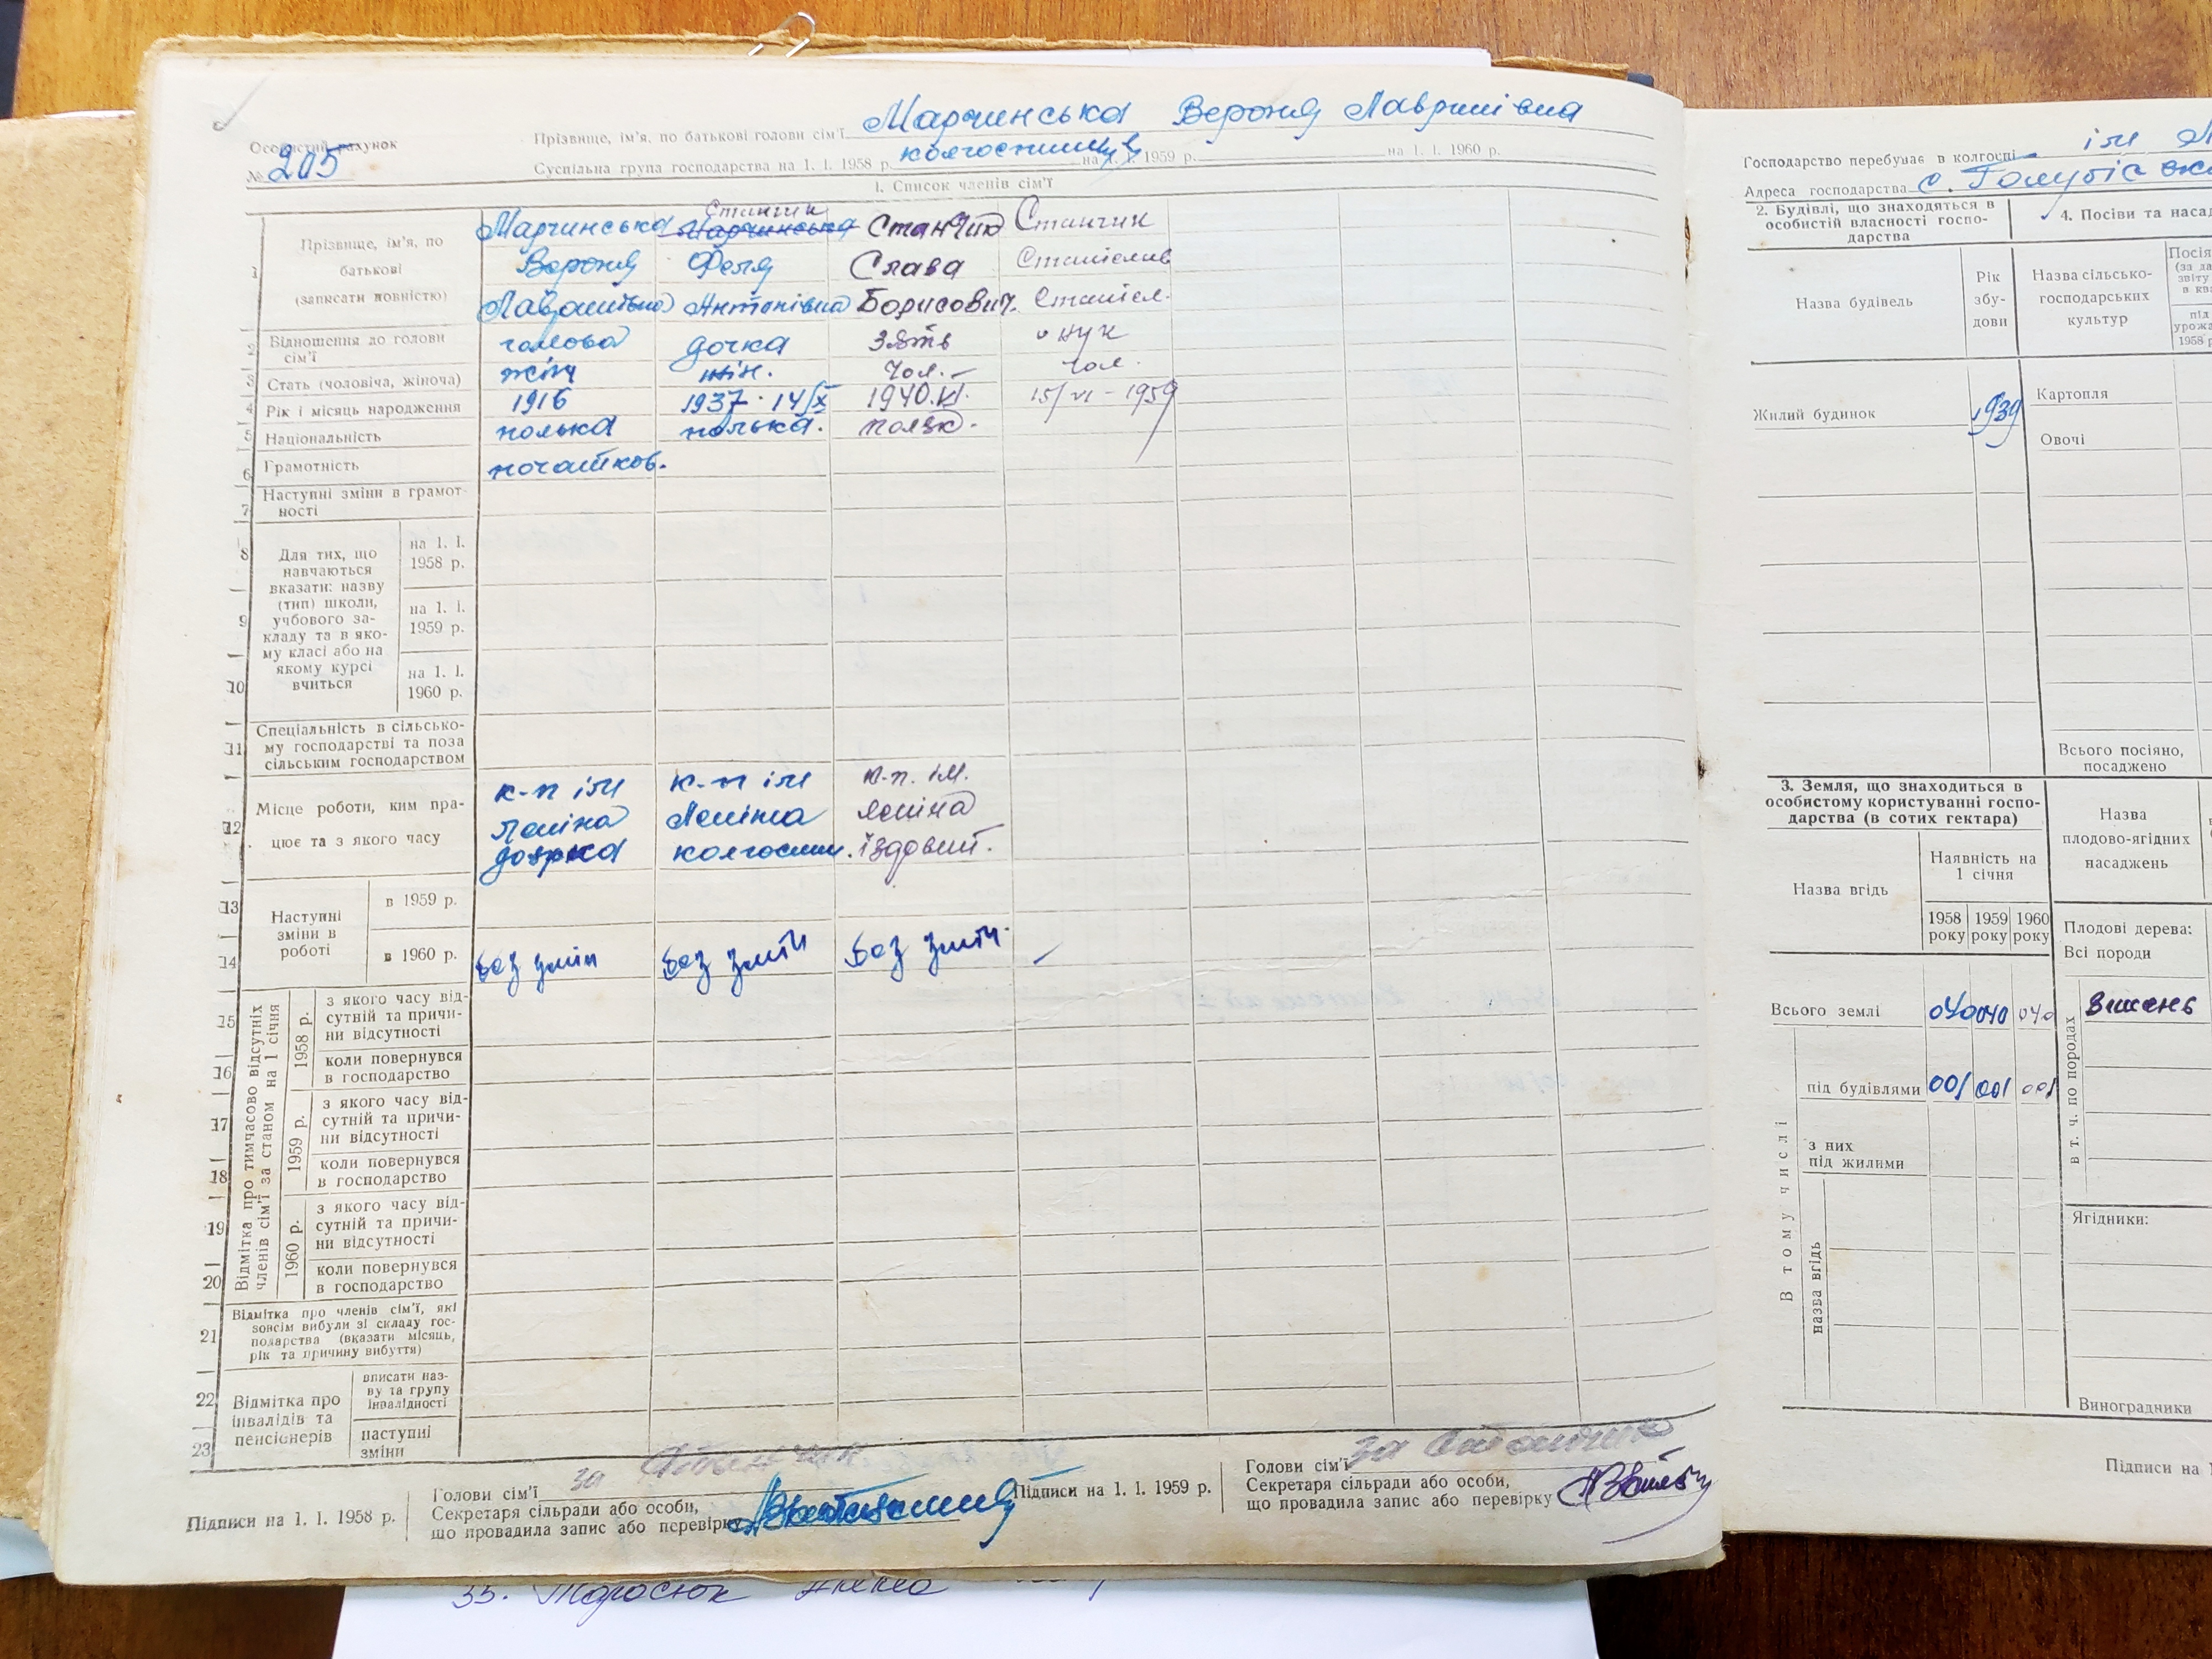 Особистий рахунок
№ 205
Прізвище, ім'я, по батькові голови сім'ї Марчинська Вероня Лавринівна
Суспільна група господарства на 1. І. 1958 р. колгоспниця на 1. І. 1959 р. на 1. І. 1960 р.
1. Список членів сім'ї
1 Прізвище, ім'я, по батькові (записати повністю)
Марчинська Вероня
Станчик Марчинська Феля Антонівна
Станчик Слава Борисович.
Станчик Станіслав Станісл.
2 Відношення до голови сім'ї голова дочка зять онук
3 Стать (чоловіча, жіноча) жін жін. Чол. чол.
4 Рік і місяць народження 1916 1937 · 14/X 1940. 15/VI - 1959
5 Національність полька полька. поляк.
6 Грамотність початков.
7 Наступні зміни в грамотності
Для тих, що навчаються вказати: назву (тип) школи, учбового закладу та в якому класі або на якому курсі вчиться
8 на 1. І. 1958 р.
9 на 1. І. 1959 р.
10 на 1. І. 1960 р.
11 Спеціальність в сільському господарстві та поза сільським господарством
12 Місце роботи, ким працює та з якого часу
к-п ім Леніна доярка
к-п ім Леніна колгоспн.
к-п. ім. Леніна їздовий.
Наступні зміни в роботі
13 в 1959 р.
14 в 1960 р. без змін без змін без змін.
Відмітка про тимчасово відсутніх членів сім'ї за станом на 1 січня
1958 р.
15 з якого часу відсутній та причини відсутності
16 коли повернувся в господарство
1959 р.
17 з якого часу відсутній та причини відсутності
18 коли повернувся в господарство
1960 р.
19 з якого часу відсутній та причини відсутності
20 коли повернувся в господарство
21 Відмітка про членів сім'ї, які зовсім вибули зі складу господарства (вказати місяць, рік та причину вибуття)
Відмітка про інвалідів та пенсіонерів
22 вписати назву та групу інвалідності
23 наступні зміни
Підписи на 1. І. 1958 р.
Голови сім'ї за
Секретаря сільради або особи,
що провадила запис або перевірку
Підписи на 1. І. 1959 р.
Голови сім'ї за
Секретаря сільради або особи,
що провадила запис або перевірку
Господарство перебуває в колгоспі ім
Адреса господарства с.
2. Будівлі, що знаходяться в особистій власності господарства
Назва будівель
Рік збудови
Жилий будинок 1939
3. Земля, що знаходиться в особистому користуванні господарства (в сотих гектара)
Назва вгідь
Наявність на 1 січня
1958 року 1959 року 1960 року
Всього землі 040 040 040
В тому числі
під будівлями 001 001 001
з них під жилими
назва вгідь
4. Посіви та насад
Назва сільськогосподарських культур
під урожа
1958 р
Картопля
Овочі
Всього посіяно, посаджено
Назва плодово-ягідних насаджень
Плодові дерева:
Всі породи
в т. ч. по породах
Вишень
Ягідники:
Виноградники
Підписи на